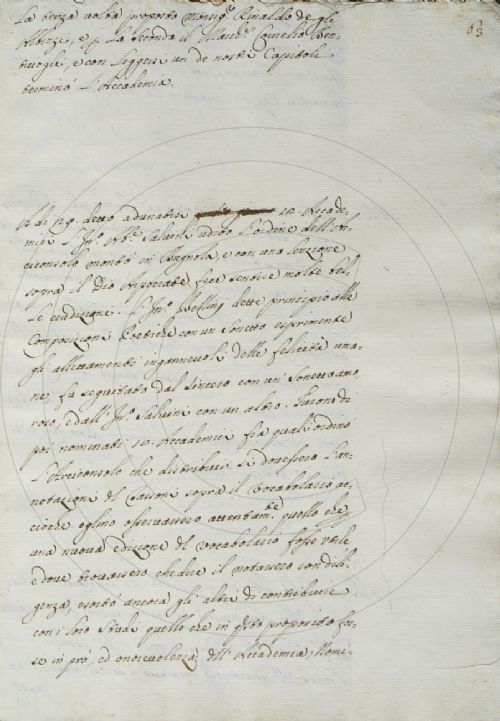 63
La terza volta propose monsig.r Rinaldo degli
Albizi, e p. La seconda il March. Cornelio Ben-
tivogli, e con leggere un de nostri Capitoli
terminò l'Accademia.
A di 29 detto adunatisi 12. Accade-
mici l'Inn. Ab. Salvini udito l'ordine dell'Ar-
ciconsolo montò in Bugnola, e con una lezzione
sopra il Dio fece sentire molte bel-
le erudizioni. L'Inn. Bellini dette principio alle
Composizioni Poetiche con un sonetto esprimente
gli allettamenti ingannevoli delle felicità uma-
ne, fu seguitato dal sincero con un sonetto amo-
roso, e dall'Inn. Salvini con un altro. Furono di
poi nominati 12. Accademici fra quali ordinò
l'Arciconsolo che distribuir si dovessero l'an-
notazioni del sopra il vocabolario ac-
ciochè eglino osservassero attentam.te quello che
una nuova edizione del vocabolario fosse utile
e dove trovassero che dire il notassero con dili-
genza, esortò ancora gli altri di contribuire
con i loro studi quello che in q.sto proposito fos-
se in prò, ed onorevolezza dell'Accademia. Nomi-